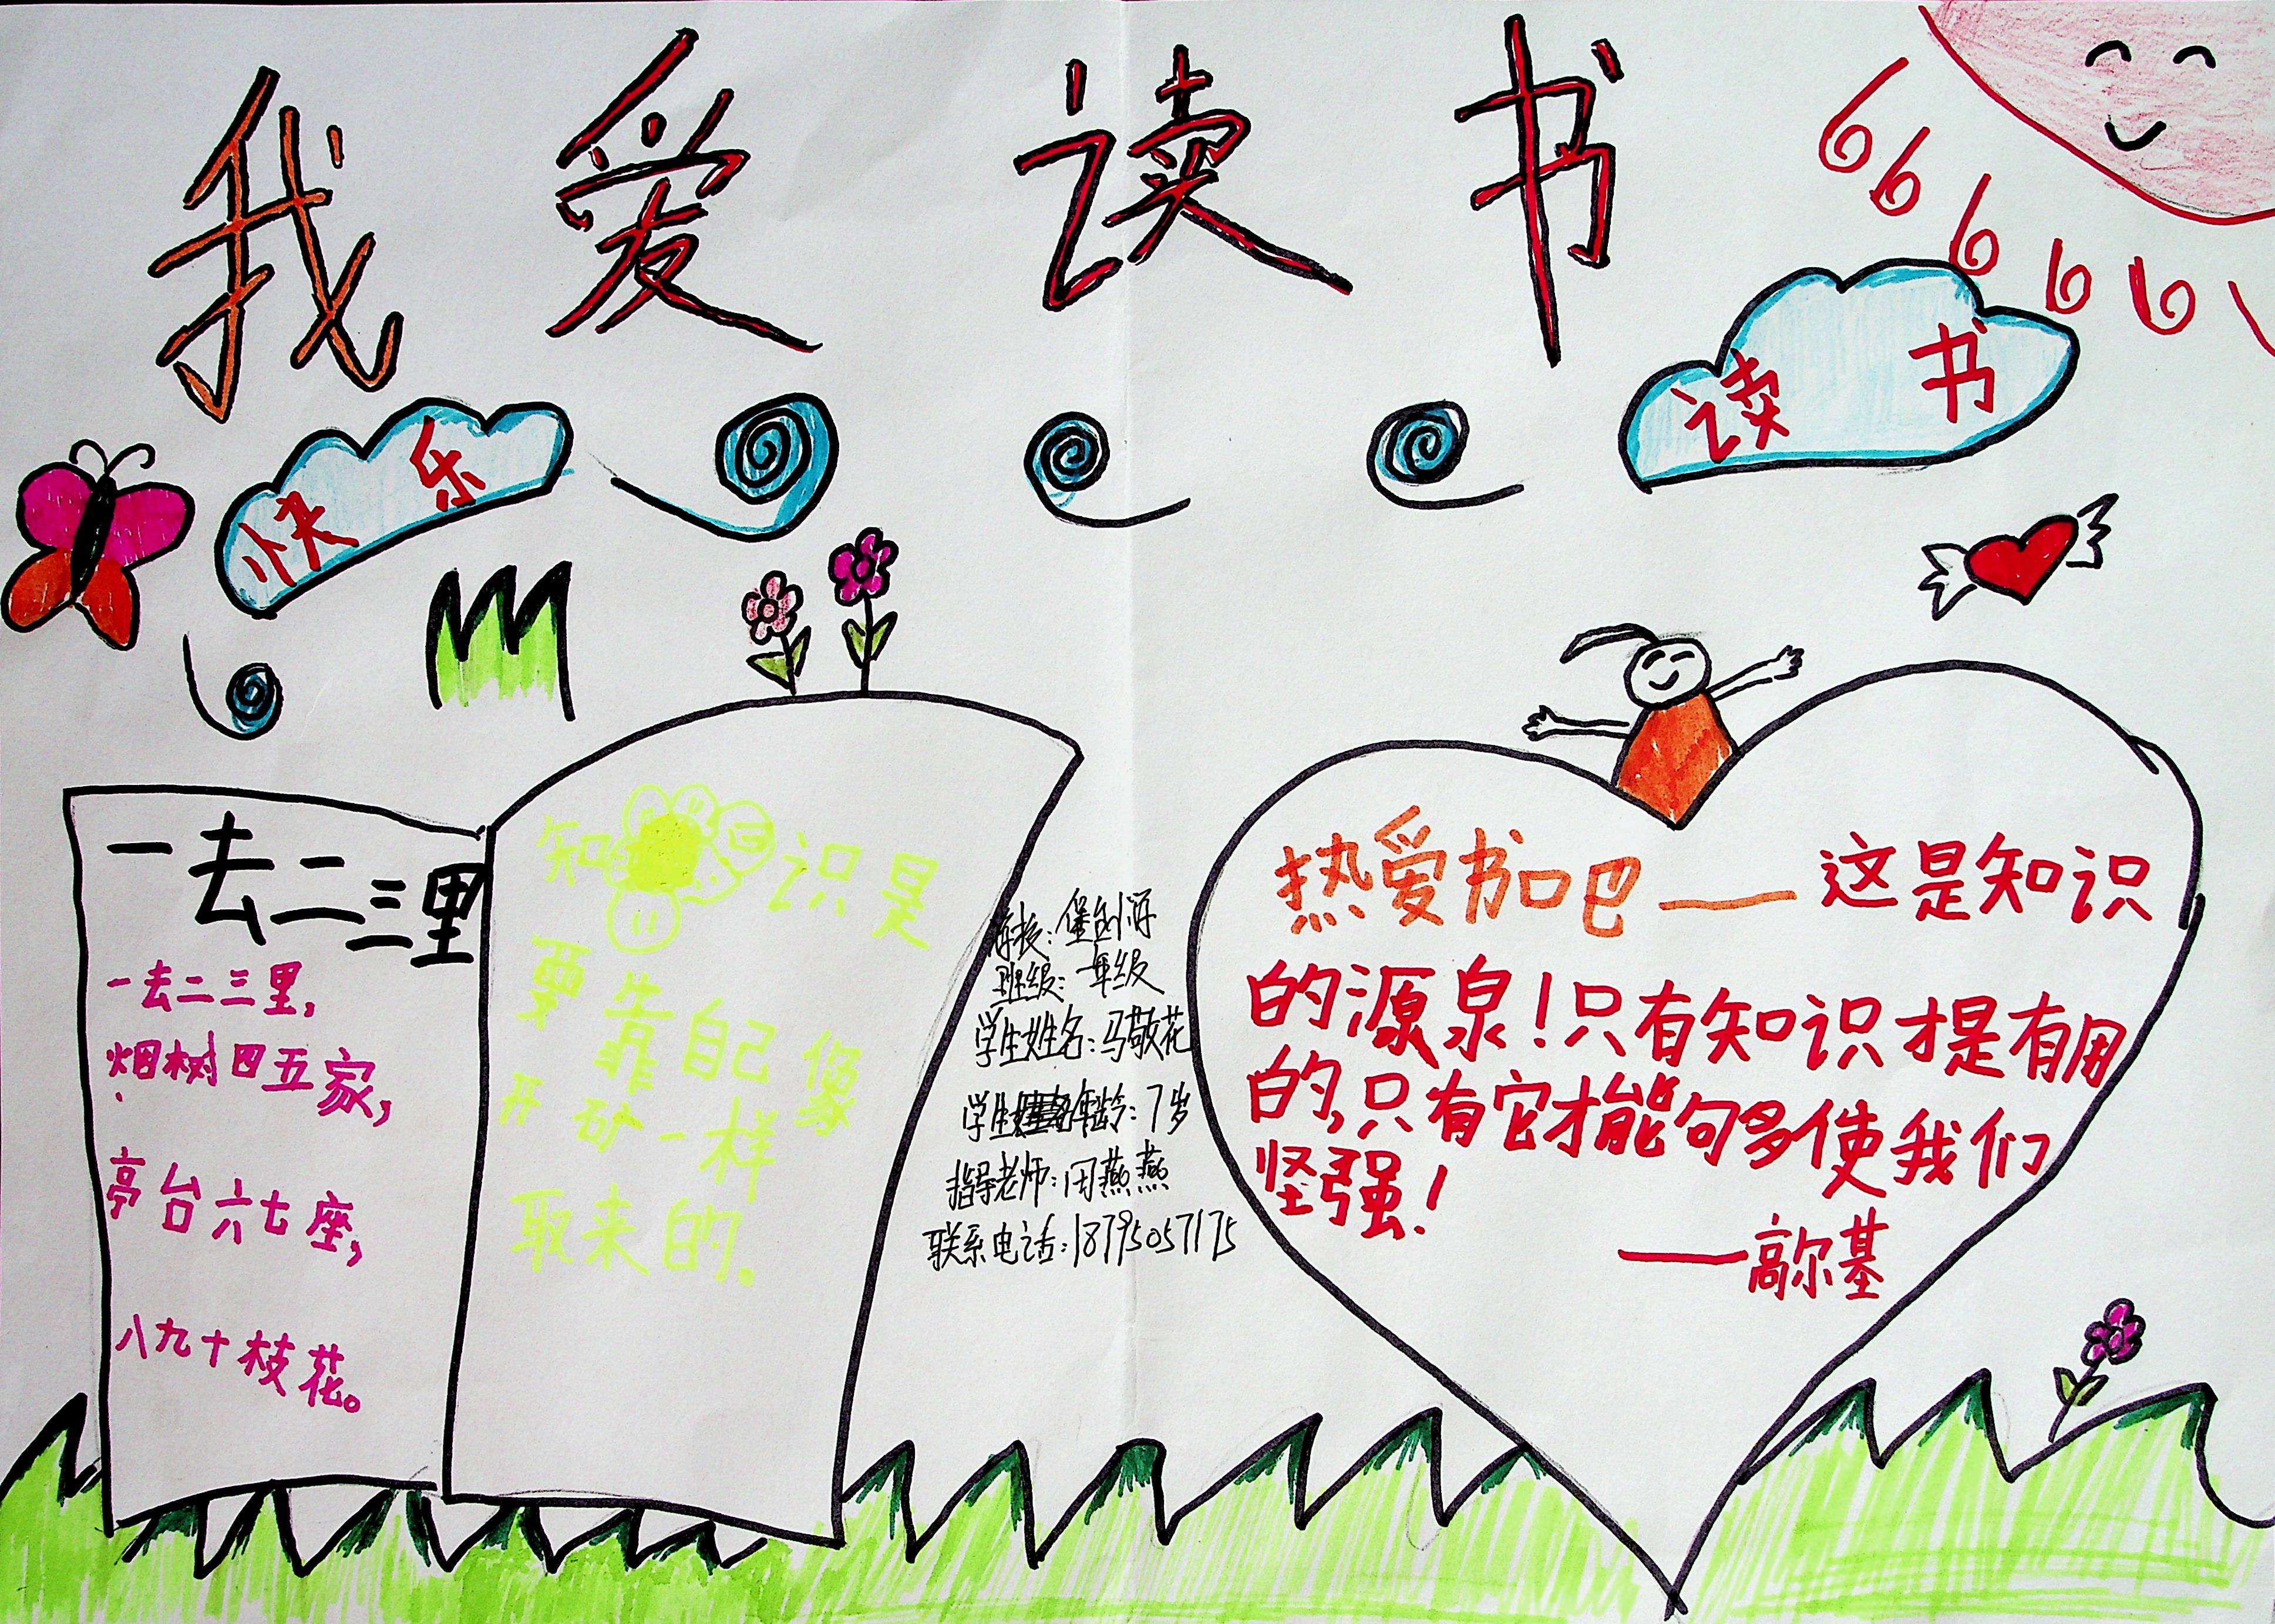 我爱读书
快乐
读书
一去二三里
一去二三里，
烟树四五家，
亭台六七座，
八九十枝花。
知识是
要靠自己像
开矿一样
取来的。
班级：一年级
学生姓名：马敬花
学生年龄：7岁
指导老师：闭燕燕
联系电话：18795057175
热爱书口巴——这是知识
的源泉！只有知识才是有用
的，只有它才能句多使我们
坚强！
——高尔基